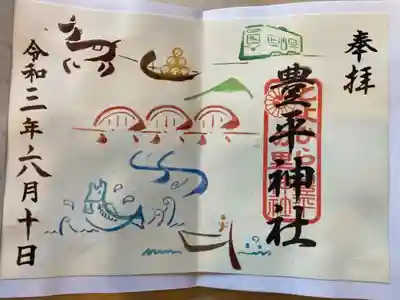 奉拝
豊平神社
令和三年六月十日